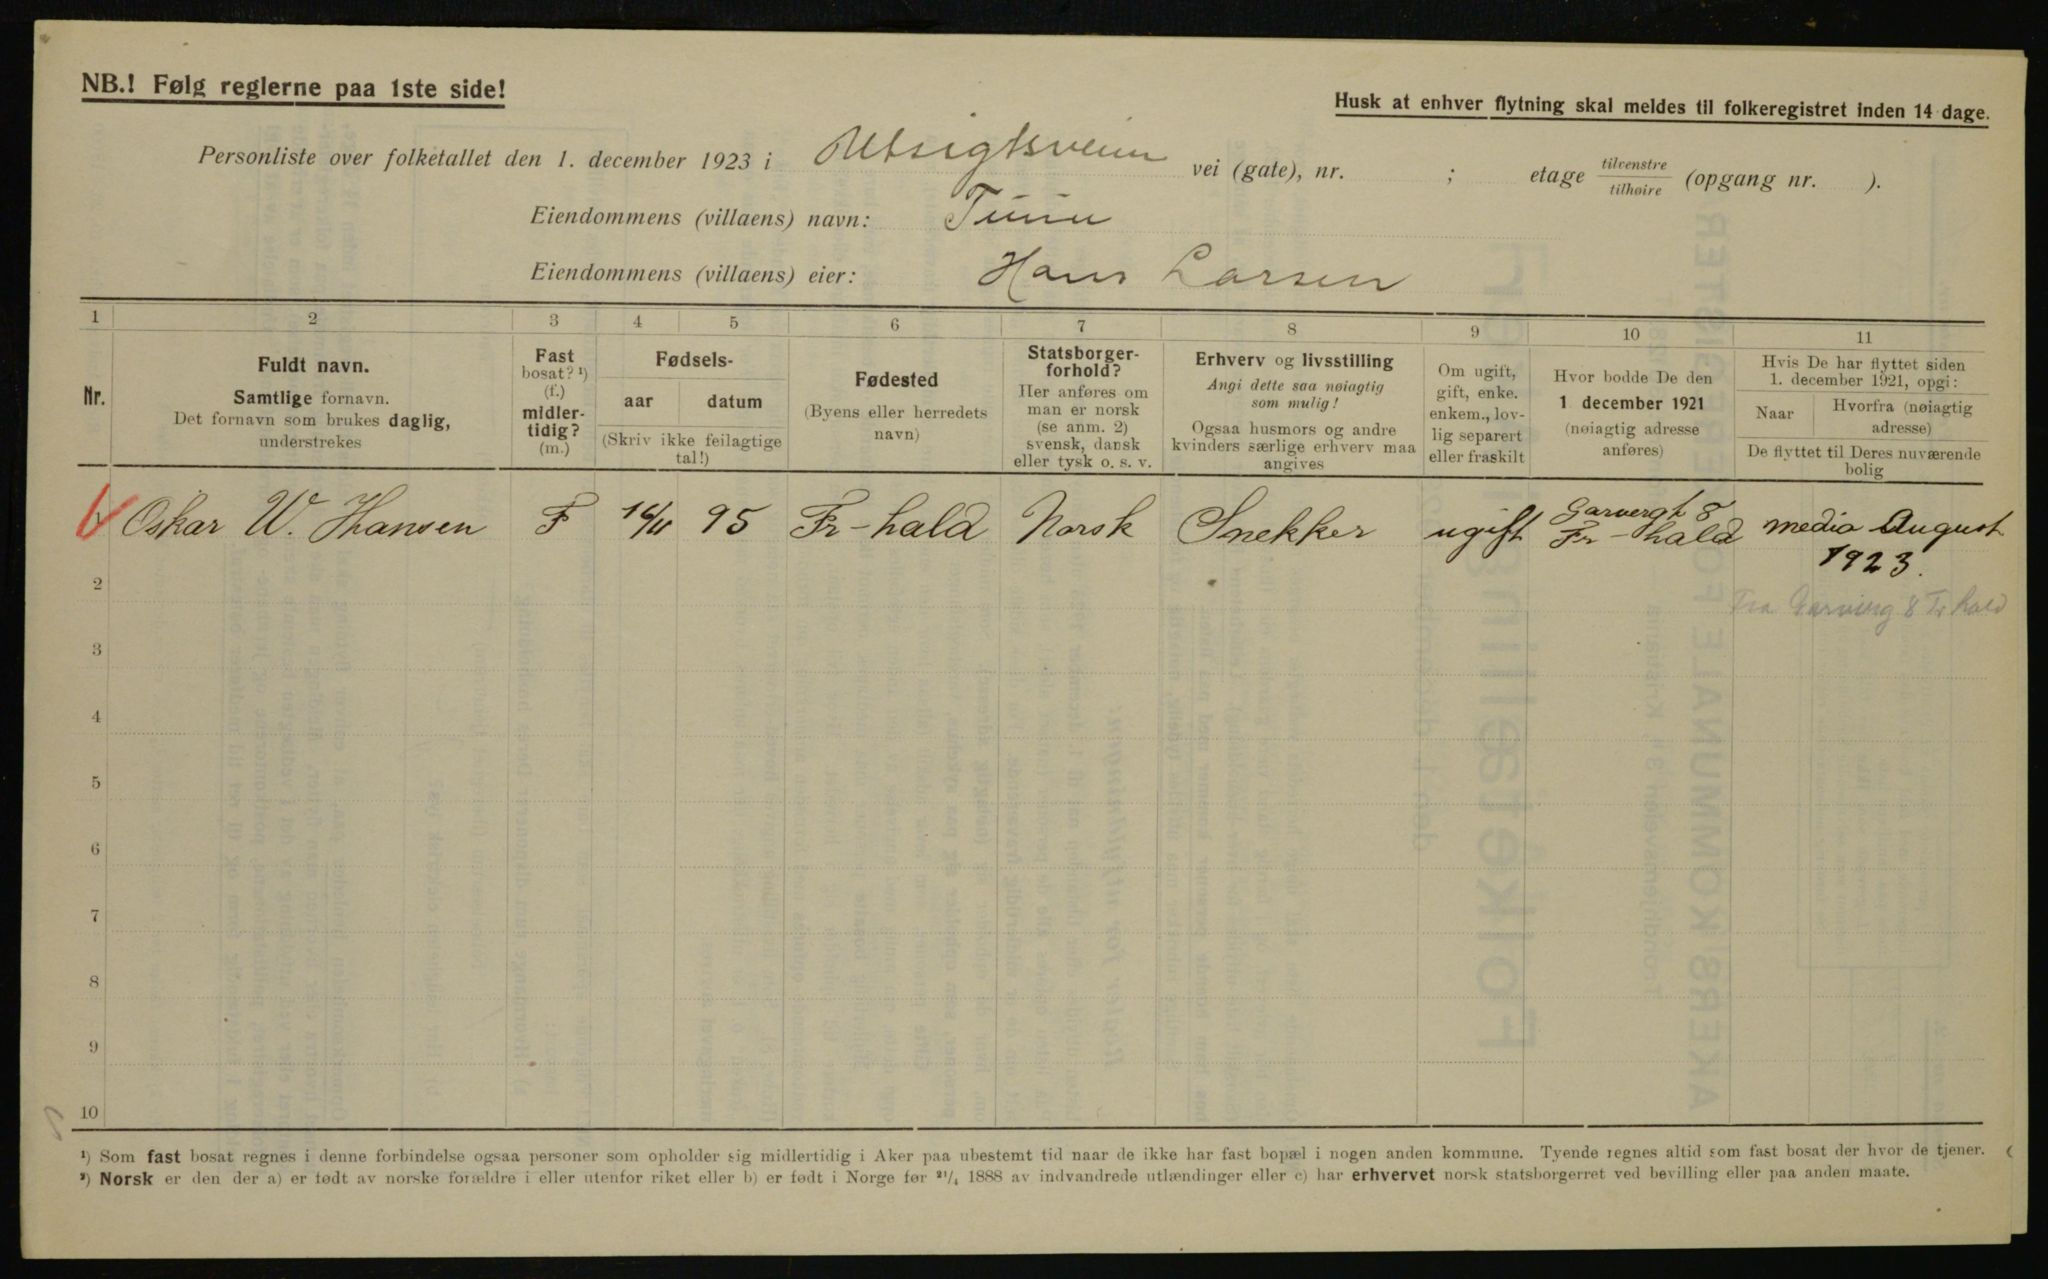 NB.! Følg reglerne paa 1ste side!
Husk at enhver flytning skal meldes til folkeregistret inden 14 dage.
Personliste over folketallet den 1. december 1923 i Utsigtsveien vei (gate), nr. ; etage tilvenstre/tilhøire (opgang nr. ).
Eiendommens (villaens) navn:
Eiendommens (villaens) eier: Hans Larsen
1 2 3 4 5 6 7 8 9 10 11
Nr.
Fuldt navn.
Samtlige fornavn.
Det fornavn som brukes daglig,
understrekes
Fast
bosat? ¹)
(f.)
midler-
tidig?
(m.)
Fødsels-
aar datum
(Skriv ikke feilagtige
tal!)
Fødested
(Byens eller herredets
navn)
Statsborger-
forhold?
Her anføres om
man er norsk
(se anm. 2)
svensk, dansk
eller tysk o. s. v.
Erhverv og livsstilling
Angi dette saa nøiagtig
som mulig!
Ogsaa husmors og andre
kvinders særlige erhverv maa
angives
Om ugift,
gift, enke.
enkem., lov-
lig separert
eller fraskilt
Hvor bodde De den
1 december 1921
(nøiagtig adresse
anføres)
Hvis De har flyttet siden
1. december 1921, opgi:
Naar
Hvorfra (nøiagtig
adresse)
De flyttet til Deres nuværende
bolig
1 Oskar W. Hansen F 16/11 95 Fr-hald Norsk Snekker ugift Garvergt 8
Fr-hald media August
1923.
2
Fra Garverg 8 Fr hald
3
4
5
6
7
8
9
10
¹) Som fast bosat regnes i denne forbindelse ogsaa personer som opholder sig midlertidig i Aker paa ubestemt tid naar de ikke har fast bopæl i nogen anden kommune. Tyende regnes altid som fast bosat der hvor de tjener.
²) Norsk er den der a) er født av norske forældre i eller utenfor riket eller b) er født i Norge før ²¹/₄ 1888 av indvandrede utlændinger eller c) har erhvervet norsk statsborgerret ved bevilling eller paa anden maate.